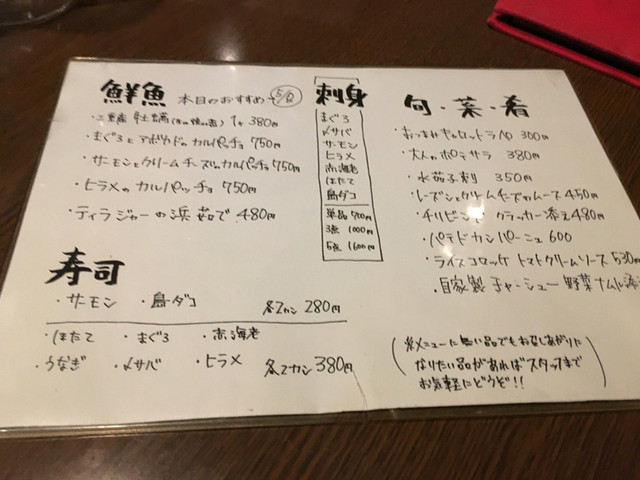 鮮魚 本日のおすすめ 5/2
・三重産 牡蠣 1ヶ 380円
・まぐろとアボカドのカルパッチョ 750円
・サーモンとクリームチーズのカルパッチョ 750円
・ヒラメのカルパッチョ 750円
・ティラジャーの浜茹で 480円
刺身
まぐろ
〆サバ
サーモン
ヒラメ
赤海老
ほたて
島ダコ
単品 700円
3点 1000円
5点 1600円
旬・菜・肴
・おつまみキャロットラペ 300円
・大人のポテサラ 380円
・水茄子刺 350円
・レーズンとクリームチーズのムース 450円
・チリビーンズ クラッカー添え 480円
・パテドカンパーニュ 600
・ライスコロッケ トマトクリームソース 530円
・自家製チャーシュー 野菜ナムル添
(※メニューに無い品でもお召しあがりに
なりたい品があればスタッフまで
お気軽にどうぞ!!)
寿司
・サーモン ・島ダコ 各2カン 280円
・ほたて ・まぐろ ・赤海老
・うなぎ ・〆サバ ・ヒラメ 各2カン 380円